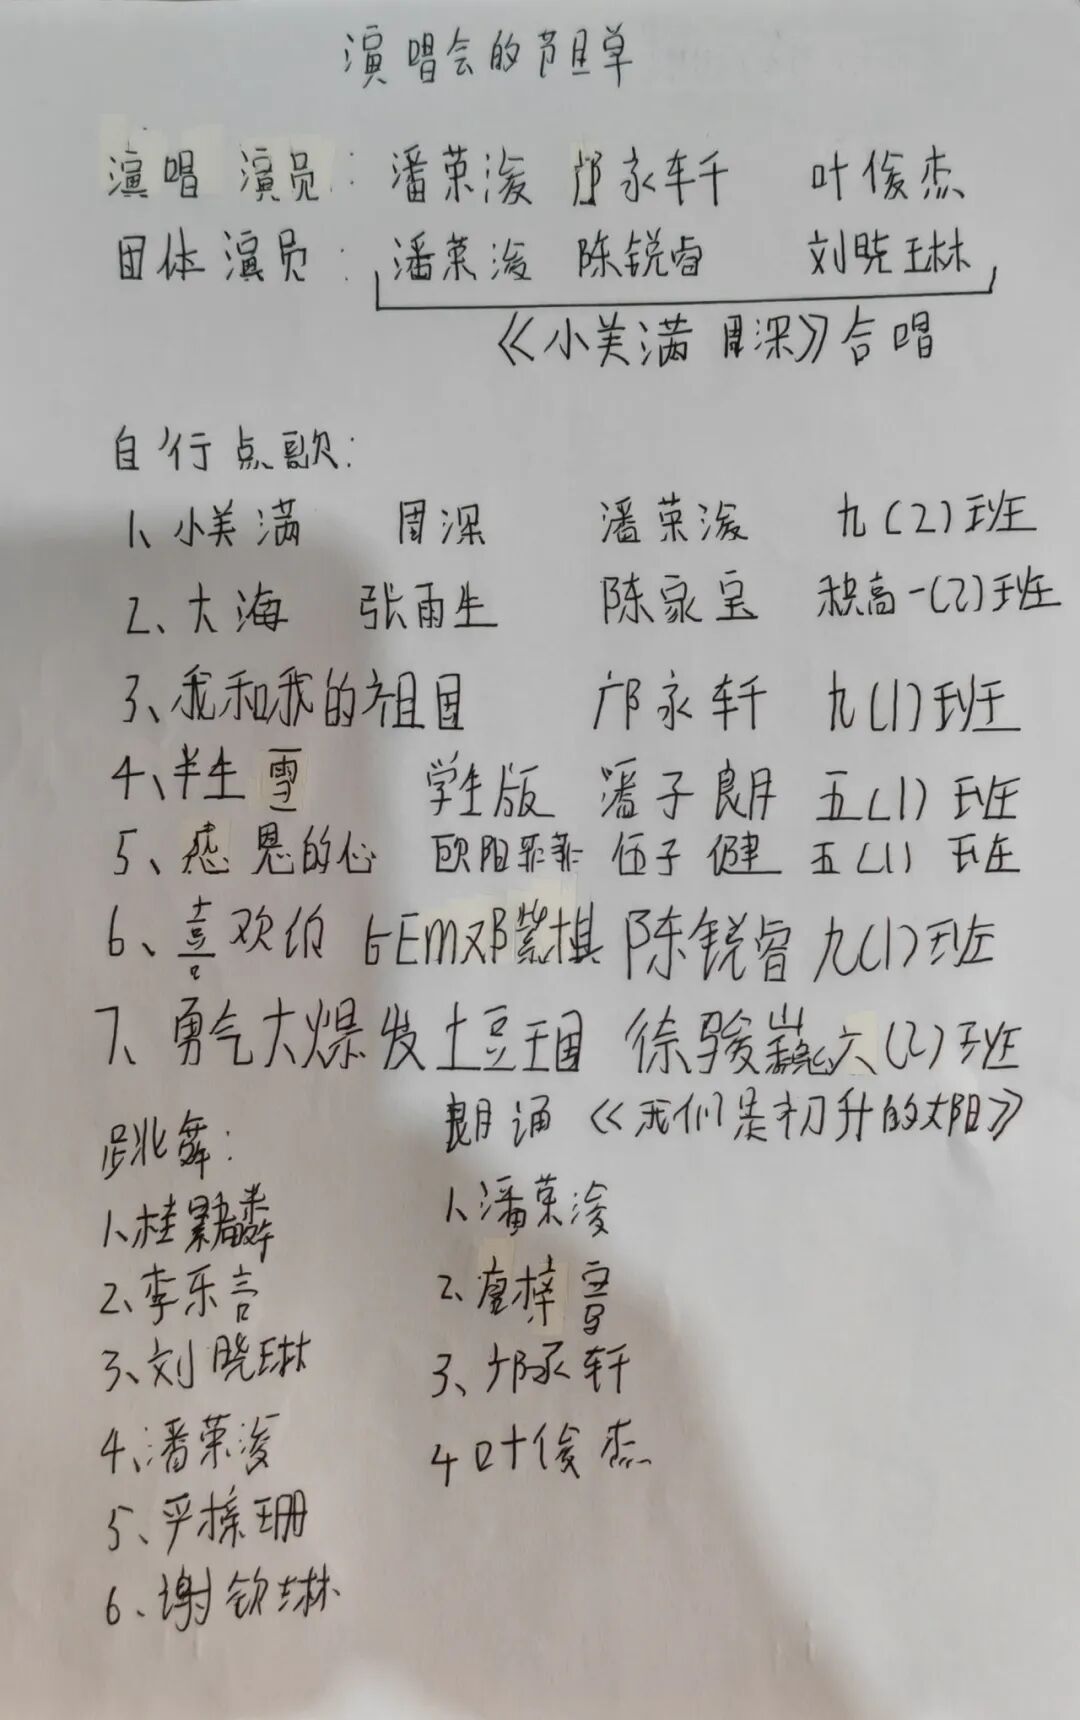 演唱会的节目单
演唱 演员: 潘荣浚 邝永轩 叶俊杰
团体演员: 潘荣浚 陈锐睿 刘晓琳
《小美满 周深》合唱
自行点歌:
1、小美满 周深 潘荣浚 九(2)班
2、大海 张雨生 陈家宝 积高一(2)班
3、我和我的祖国 邝永轩 九(1)班
4、半生雪 学生版 潘子朗 五(1)班
5、感恩的心 欧阳菲菲 伍子健 五(1)班
6、喜欢你 GEM邓紫棋 陈锐睿 九(1)班
7、勇气大爆发 土豆王国 徐骏巍 六(2)班
跳舞:
1、桂麟
2、李乐言
3、刘晓琳
4、潘荣浚
5、严樑珊
6、谢钦琳
朗诵《我们是初升的太阳》
1、潘荣浚
2、唐梓
3、邝永轩
4 叶俊杰